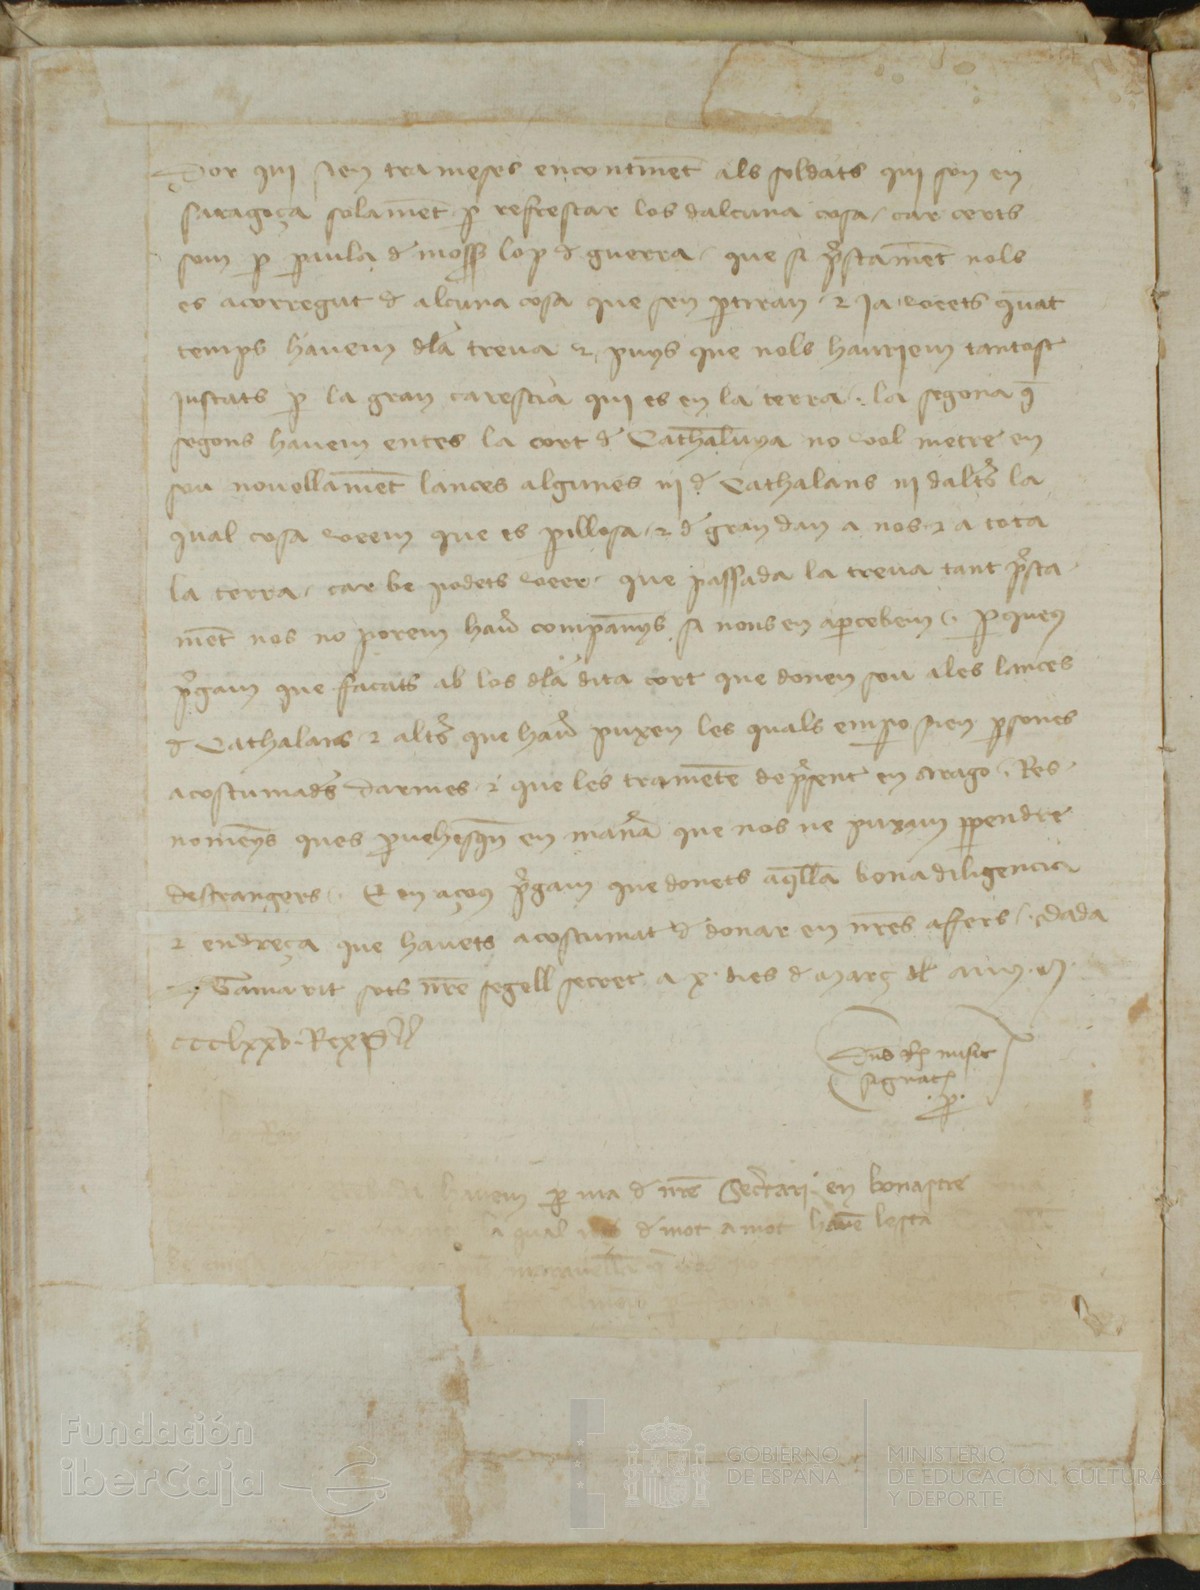 Dor qui sien trameses encontinẽt als soldats qui son en
saragoça solamẽt p refrescar los dalcuna cosa / car certs
som p paula d moss lop d guerra / que si pstamẽt nols
es acorregut d alcuna cosa que sen ptiran / ⁊ ja veets quãt
temps hauem dla treua ⁊ puys que nols hauriem tantost
justats p la gran carestia qui es en la terra / la segona q̃
segons hauem entes la cort d Cathalunya no vol metre en
sou nouellamẽt lances algunes ni d Cathalans ni daltrs la
qual cosa veem que es pillosa / ⁊ d gran dan a nos ⁊ a tota
la terra / car be podets veer / que passada la treua tant psta
mẽt nos no porem hauer companys si nons en apcebem / pqueus
pgam que façats ab los dla dita cort que donen sou a les lances
d Cathalans ⁊ altrs que hauer puxen les quals empo sien psones
acostumades darmes ⁊ que les tramẽtẽ de psent en Arago / Res
nomẽys ques puehesquẽ en manera que nos ne puxam ppendre
destrangers / E en açous pgam que donets aq̃lla bona diligencia
⁊ endreça que hauets acostumat d donar en nr̃es affers / dada
Tamarit sots nr̃e segell secret a x dies d març dl any M
CCCLxxv Rex P
Dns Rex misit
signatã
.p.
hauem p ma d nr̃e Secretari en bonastre
la qual d mot a mot hauẽ lesta